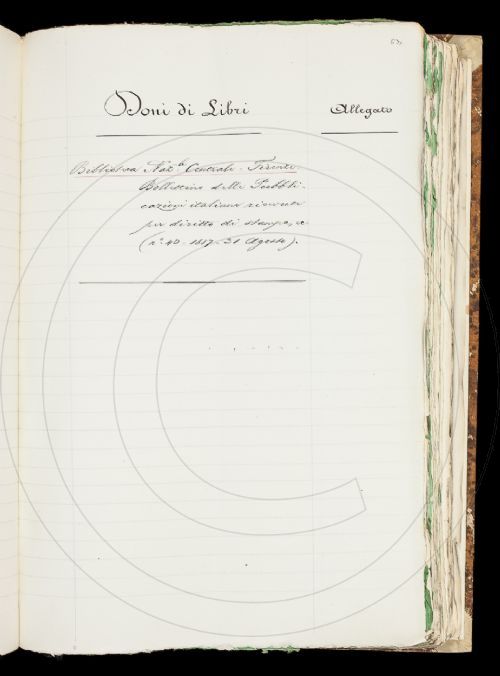 Doni di Libri
Allegato
Biblioteca Naz.le Centrale - Firenze
Bollettino delle Pubbli-
cazioni italiane ricevute
per diritto di stampa, e
(n.° 40 - 1887 - 31 Agosto).